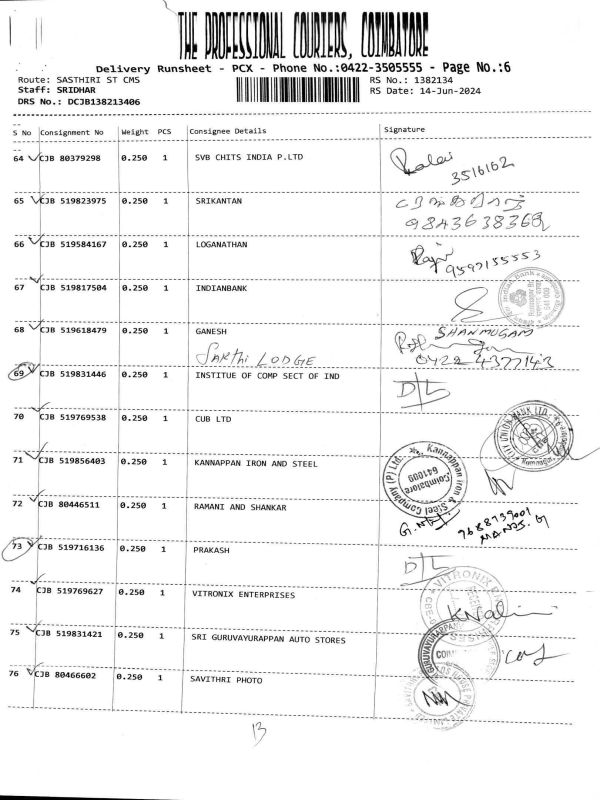 THE PROFESSIONAL COURIERS, COIMBATORE
Delivery Runsheet - PCX - Phone No.:0422-3505555 - Page No.:6
Route: SASTHIRI ST CMS
RS No.: 1382134
Staff: SRIDHAR
RS Date: 14-Jun-2024
DRS No.: DCJB138213406
S No Consignment No Weight PCS Consignee Details Signature
64 CJB 80379298 0.250 1 SVB CHITS INDIA P.LTD
3516162
65 CJB 519823975 0.250 1 SRIKANTAN
66 CJB 519584167 0.250 1 LOGANATHAN
9597155553
67 CJB 519817504 0.250 1 INDIANBANK
Indian Bank
68 CJB 519618479 0.250 1 GANESH SHANMUGAM
SAKTHI LODGE 0422 4377143
69 CJB 519831446 0.250 1 INSTITUE OF COMP SECT OF IND D/L
70 CJB 519769538 0.250 1 CUB LTD
CITY UNION BANK LTD.
Ramnagar
71 CJB 519856403 0.250 1 KANNAPPAN IRON AND STEEL
Kannappan Iron & Steel Company (P) Ltd.
Coimbatore
641009
72 CJB 80446511 0.250 1 RAMANI AND SHANKAR
9688739001
MANOJ. G
73 CJB 519716136 0.250 1 PRAKASH D/L
74 CJB 519769627 0.250 1 VITRONIX ENTERPRISES
VITRONIX
K Nalini
75 CJB 519831421 0.250 1 SRI GURUVAYURAPPAN AUTO STORES
GURUVAYURAPPAN
76 CJB 80466602 0.250 1 SAVITHRI PHOTO
13